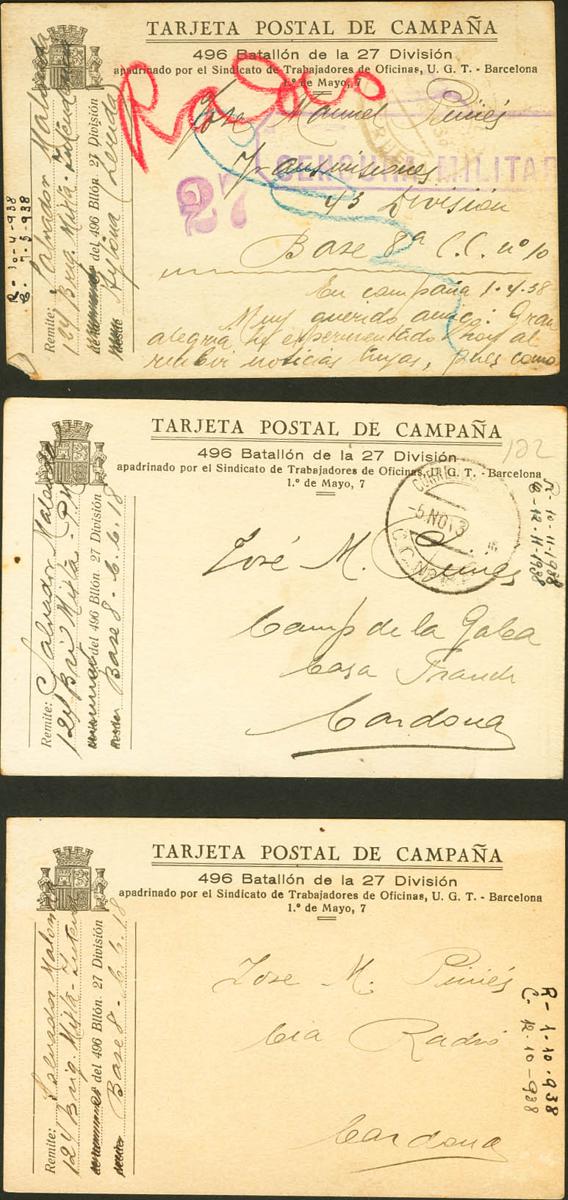 TARJETA POSTAL DE CAMPAÑA
496 Batallón de la 27 División
apadrinado por el Sindicato de Trabajadores de Oficinas, U. G. T. - Barcelona
1.º de Mayo, 7
Radio
José Manuel Pinies
Transmisiones
CENSURA MILITAR
27
43 División
Base 8ª C.C. nº 10
En campaña 1-4-38
Muy querido amigo: Gran
alegria he experimentado hoy al
recibir noticias tuyas, pues como
Remite: Salvador
124 Brig. Mixta - Intendencia
del 496 Btllón. 27 División
R- 10-4-938
TARJETA POSTAL DE CAMPAÑA
496 Batallón de la 27 División
apadrinado por el Sindicato de Trabajadores de Oficinas, U. G. T. - Barcelona
1.º de Mayo, 7
122
CORREOS
5 NOV 3
José M. Pinies
Camp de la
Casa
Cardona
Remite: Salvador
124 Brig Mixta
del 496 Btllón. 27 División
Base 8 - C.C. 18
R- 10-11-1938
C- 12-11-1938
TARJETA POSTAL DE CAMPAÑA
496 Batallón de la 27 División
apadrinado por el Sindicato de Trabajadores de Oficinas, U. G. T. - Barcelona
1.º de Mayo, 7
Jose M. Piniés
Cia Radio
Cardona
Remite: Salvador
124 Brig. Mixta - Inten
del 496 Btllón. 27 División
Base 8 - C.C. 18
R- 1-10-938
C- 12-10-938